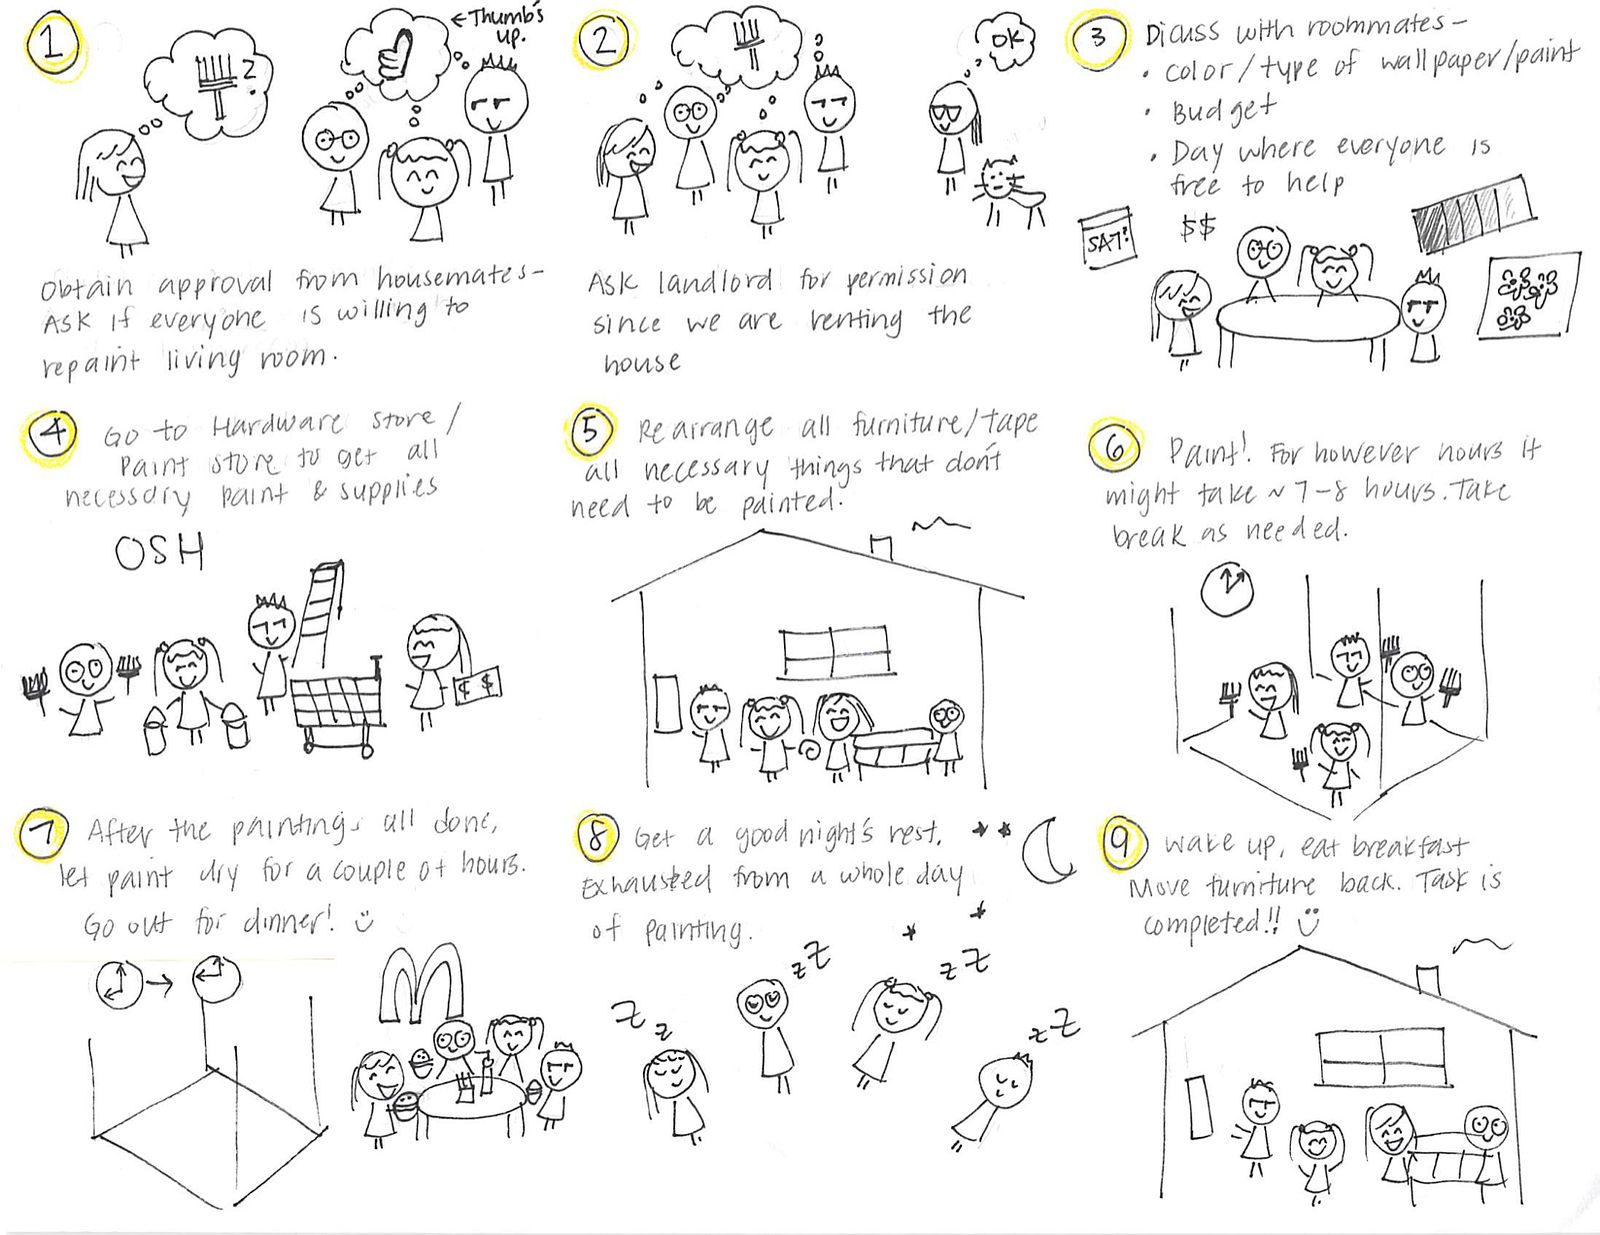 1
2?
← Thumb's
up.
Obtain approval from housemates-
ASK if everyone is willing to
repaint living room.
2
OK
Ask landlord for permission
since we are renting the
house
3
Dicuss with roommates-
• color/type of wallpaper/paint
• Budget
• Day where everyone is
free to help
SAT?
$$
4
Go to Hardware store/
Paint store to get all
necessary paint & supplies
OSH
$ $
5
Rearrange all furniture/tape
all necessary things that don't
need to be painted.
6
Paint! For however hours it
might take ~ 7-8 hours. Take
break as needed.
7
After the painting's all done,
let paint dry for a couple of hours.
Go out for dinner! :)
M
8
Get a good night's rest.
Exhausted from a whole day
of painting.
zZ
zZ
Zz
zZ
9
Wake up, eat breakfast
Move furniture back. Task is
completed!! :)